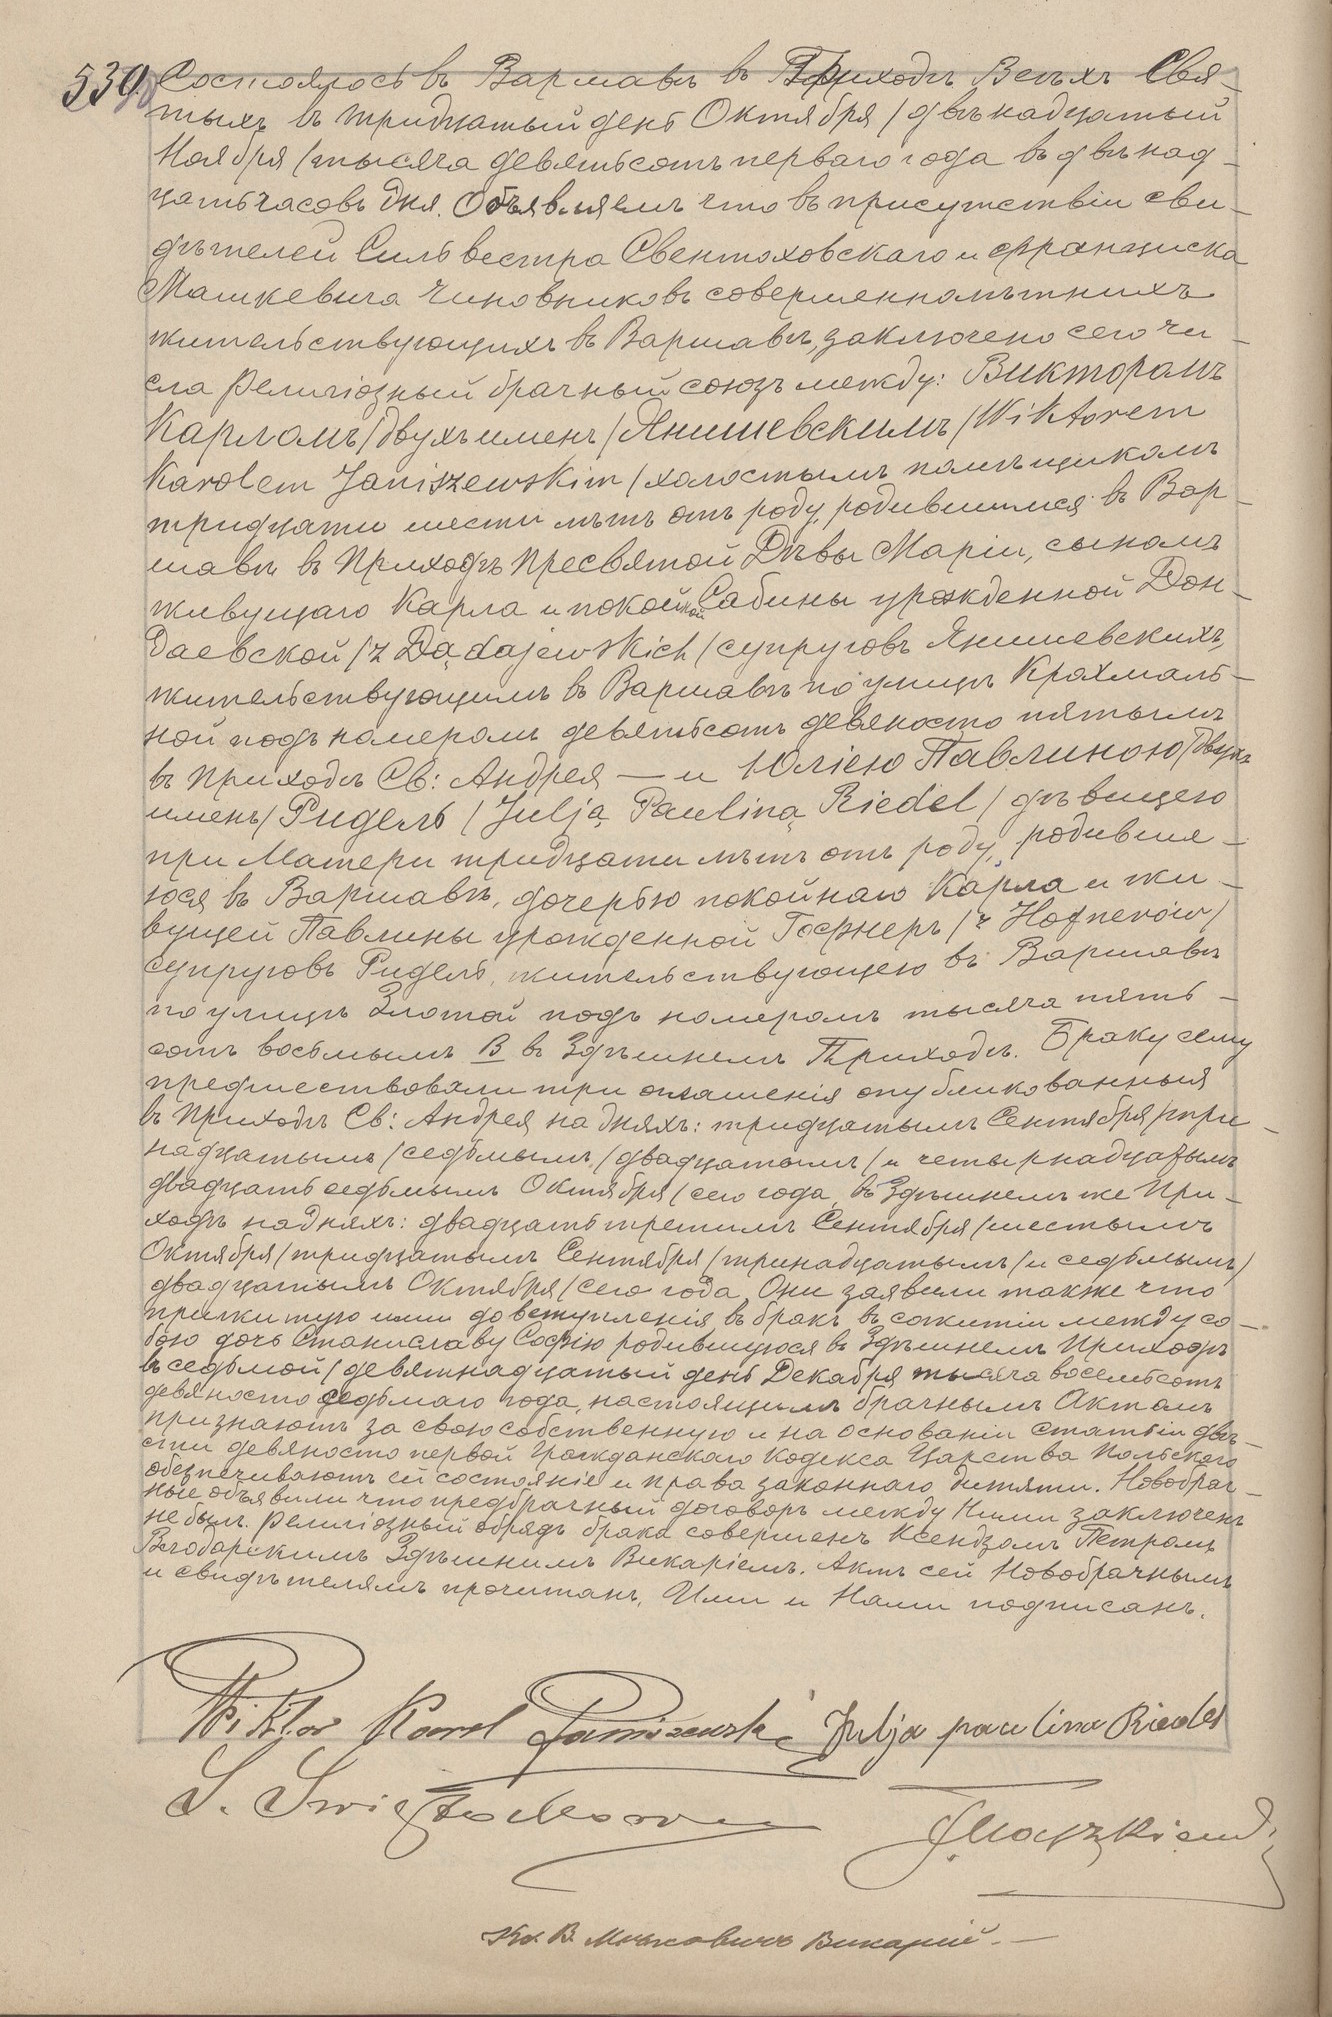 539
Состоялось въ Варшавѣ въ Приходѣ Всѣхъ Свя-
тыхъ въ тридцатый день Октября /двѣнадцатый
Ноября/ тысяча девятьсотъ перваго года въ двѣнад-
цать часовъ дня. Объявляемъ что въ присутствіи сви-
дѣтелей Сильвестра Свентоховскаго и Франциска
Машкевича Чиновниковъ совершеннолѣтнихъ
жительствующихъ въ Варшавѣ, заключено сего чи-
сла религіозный брачный союзъ между: Викторомъ
Карломъ /двухъ именъ/ Янишевскимъ /Wiktorem
Karolem Janiszewskim/ холостымъ помѣщикомъ
тридцати шести лѣтъ отъ роду, родившимся въ Вар-
шавѣ въ Приходѣ Пресвятой Дѣвы Маріи, сыномъ
живущаго Карла и покойной Сабины урожденной Дон-
даевской /z Dądajewskich/ супруговъ Янишевскихъ,
жительствующимъ въ Варшавѣ по улицѣ Крахмаль-
ной подъ номеромъ девятьсотъ девяносто пятымъ
въ Приходѣ Св: Андрея — и Юліею Павлиною /двухъ
именъ/ Ридель /Julją Pauliną Riedel/ дѣвицею
при Матери тридцати лѣтъ отъ роду, родивше-
юся въ Варшавѣ, дочерью покойнаго Карла и жи-
вущей Павлины урожденной Гофнеръ /z Hofnerów/
супруговъ Ридель, жительствующею въ Варшавѣ
по улицѣ Злотой подъ номеромъ тысяча пять-
сотъ восьмымъ В въ Здѣшнемъ Приходѣ. Браку сему
предшествовали три оглашенія опубликованныя
въ Приходѣ Св: Андрея на дняхъ: тридцатымъ Сентября /три-
надцатымъ/ седьмымъ /двадцатымъ/ и четырнадцатымъ
двадцать седьмымъ Октября/ сего года, въ Здѣшнемъ же При-
ходѣ на дняхъ: двадцать третимъ Сентября /шестымъ
Октября/ тридцатымъ Сентября /тринадцатымъ/ и седьмымъ/
двадцатымъ Октября/ сего года. Они заявили также что
прижитую ими до вступленія въ бракъ въ сожитіи между со-
бою дочь Станиславу Софію родившуюся въ Здѣшнемъ Приходѣ
въ седьмой /девятнадцатый день Декабря тысяча восемьсотъ
девяносто седьмаго года, настоящимъ брачнымъ Актомъ
признаютъ за свою собственную и на основаніи статьи двѣ-
сти девяносто первой Гражданскаго Кодекса Царства Польскаго
обезпечиваютъ ей состояніе и права законнаго дитяти. Новобрач-
ные объявили что предбрачный договоръ между Ними заключенъ
не былъ. Религіозный обрядъ брака совершенъ Ксендзомъ Петромъ
Здѣшнимъ Викаріемъ. Актъ сей Новобрачнымъ
и свидѣтелямъ прочитанъ, Ими и Нами подписанъ.
Wiktor Karol Janiszewski Julja paulina Riedel
S. Świętochowski
F. Maszkiewicz
Кс. В. Викарій.